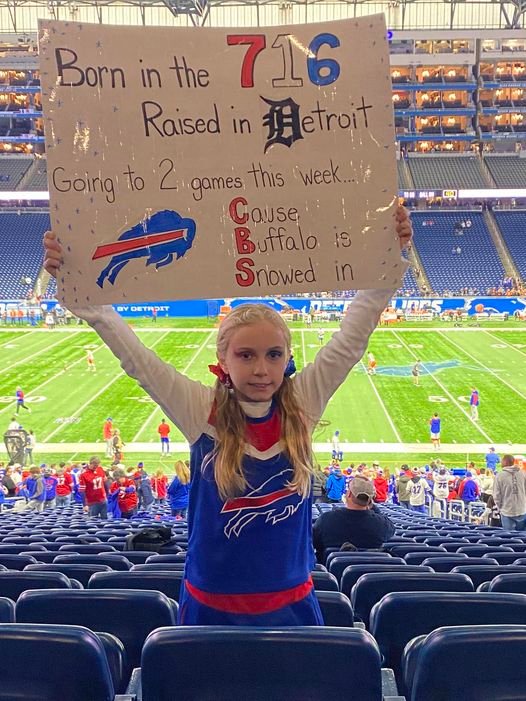 Born in the 716
Raised in Detroit
Going to 2 games this week...
Cause
Buffalo is
Snowed in
BY DETROIT